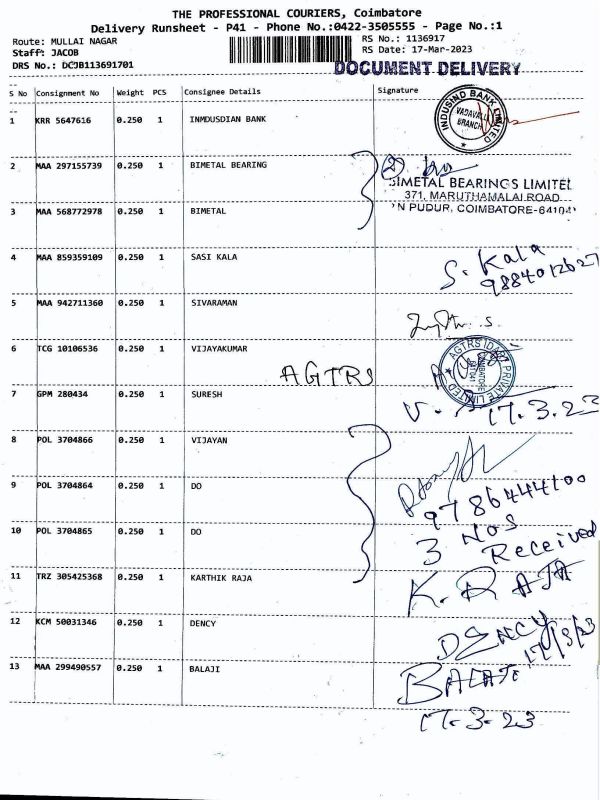 THE PROFESSIONAL COURIERS, Coimbatore
Delivery Runsheet - P41 - Phone No.:0422-3505555 - Page No.:1
Route: MULLAI NAGAR RS No.: 1136917
Staff: JACOB RS Date: 17-Mar-2023
DRS No.: DCJB113691701 DOCUMENT DELIVERY
S No Consignment No Weight PCS Consignee Details Signature
1 KRR 5647616 0.250 1 INMDUSDIAN BANK INDUSIND BANK LIMITED VADAVALLI BRANCH
2 MAA 297155739 0.250 1 BIMETAL BEARING
BIMETAL BEARINGS LIMITED
371, MARUTHAMALAI ROAD
3 MAA 568772978 0.250 1 BIMETAL 'N PUDUR, COIMBATORE-641041
4 MAA 859359109 0.250 1 SASI KALA S. Kala
9884012627
5 MAA 942711360 0.250 1 SIVARAMAN
6 TCG 10106536 0.250 1 VIJAYAKUMAR AGTRS PRIVATE LIMITED
AGTRS
7 GPM 280434 0.250 1 SURESH 17.3.23
8 POL 3704866 0.250 1 VIJAYAN
9 POL 3704864 0.250 1 DO 9786444100
10 POL 3704865 0.250 1 DO 3 Nos Received
11 TRZ 305425368 0.250 1 KARTHIK RAJA K. RAJA
12 KCM 50031346 0.250 1 DENCY DENCY 17/3/23
13 MAA 299490557 0.250 1 BALAJI BALAJI
17.3.23